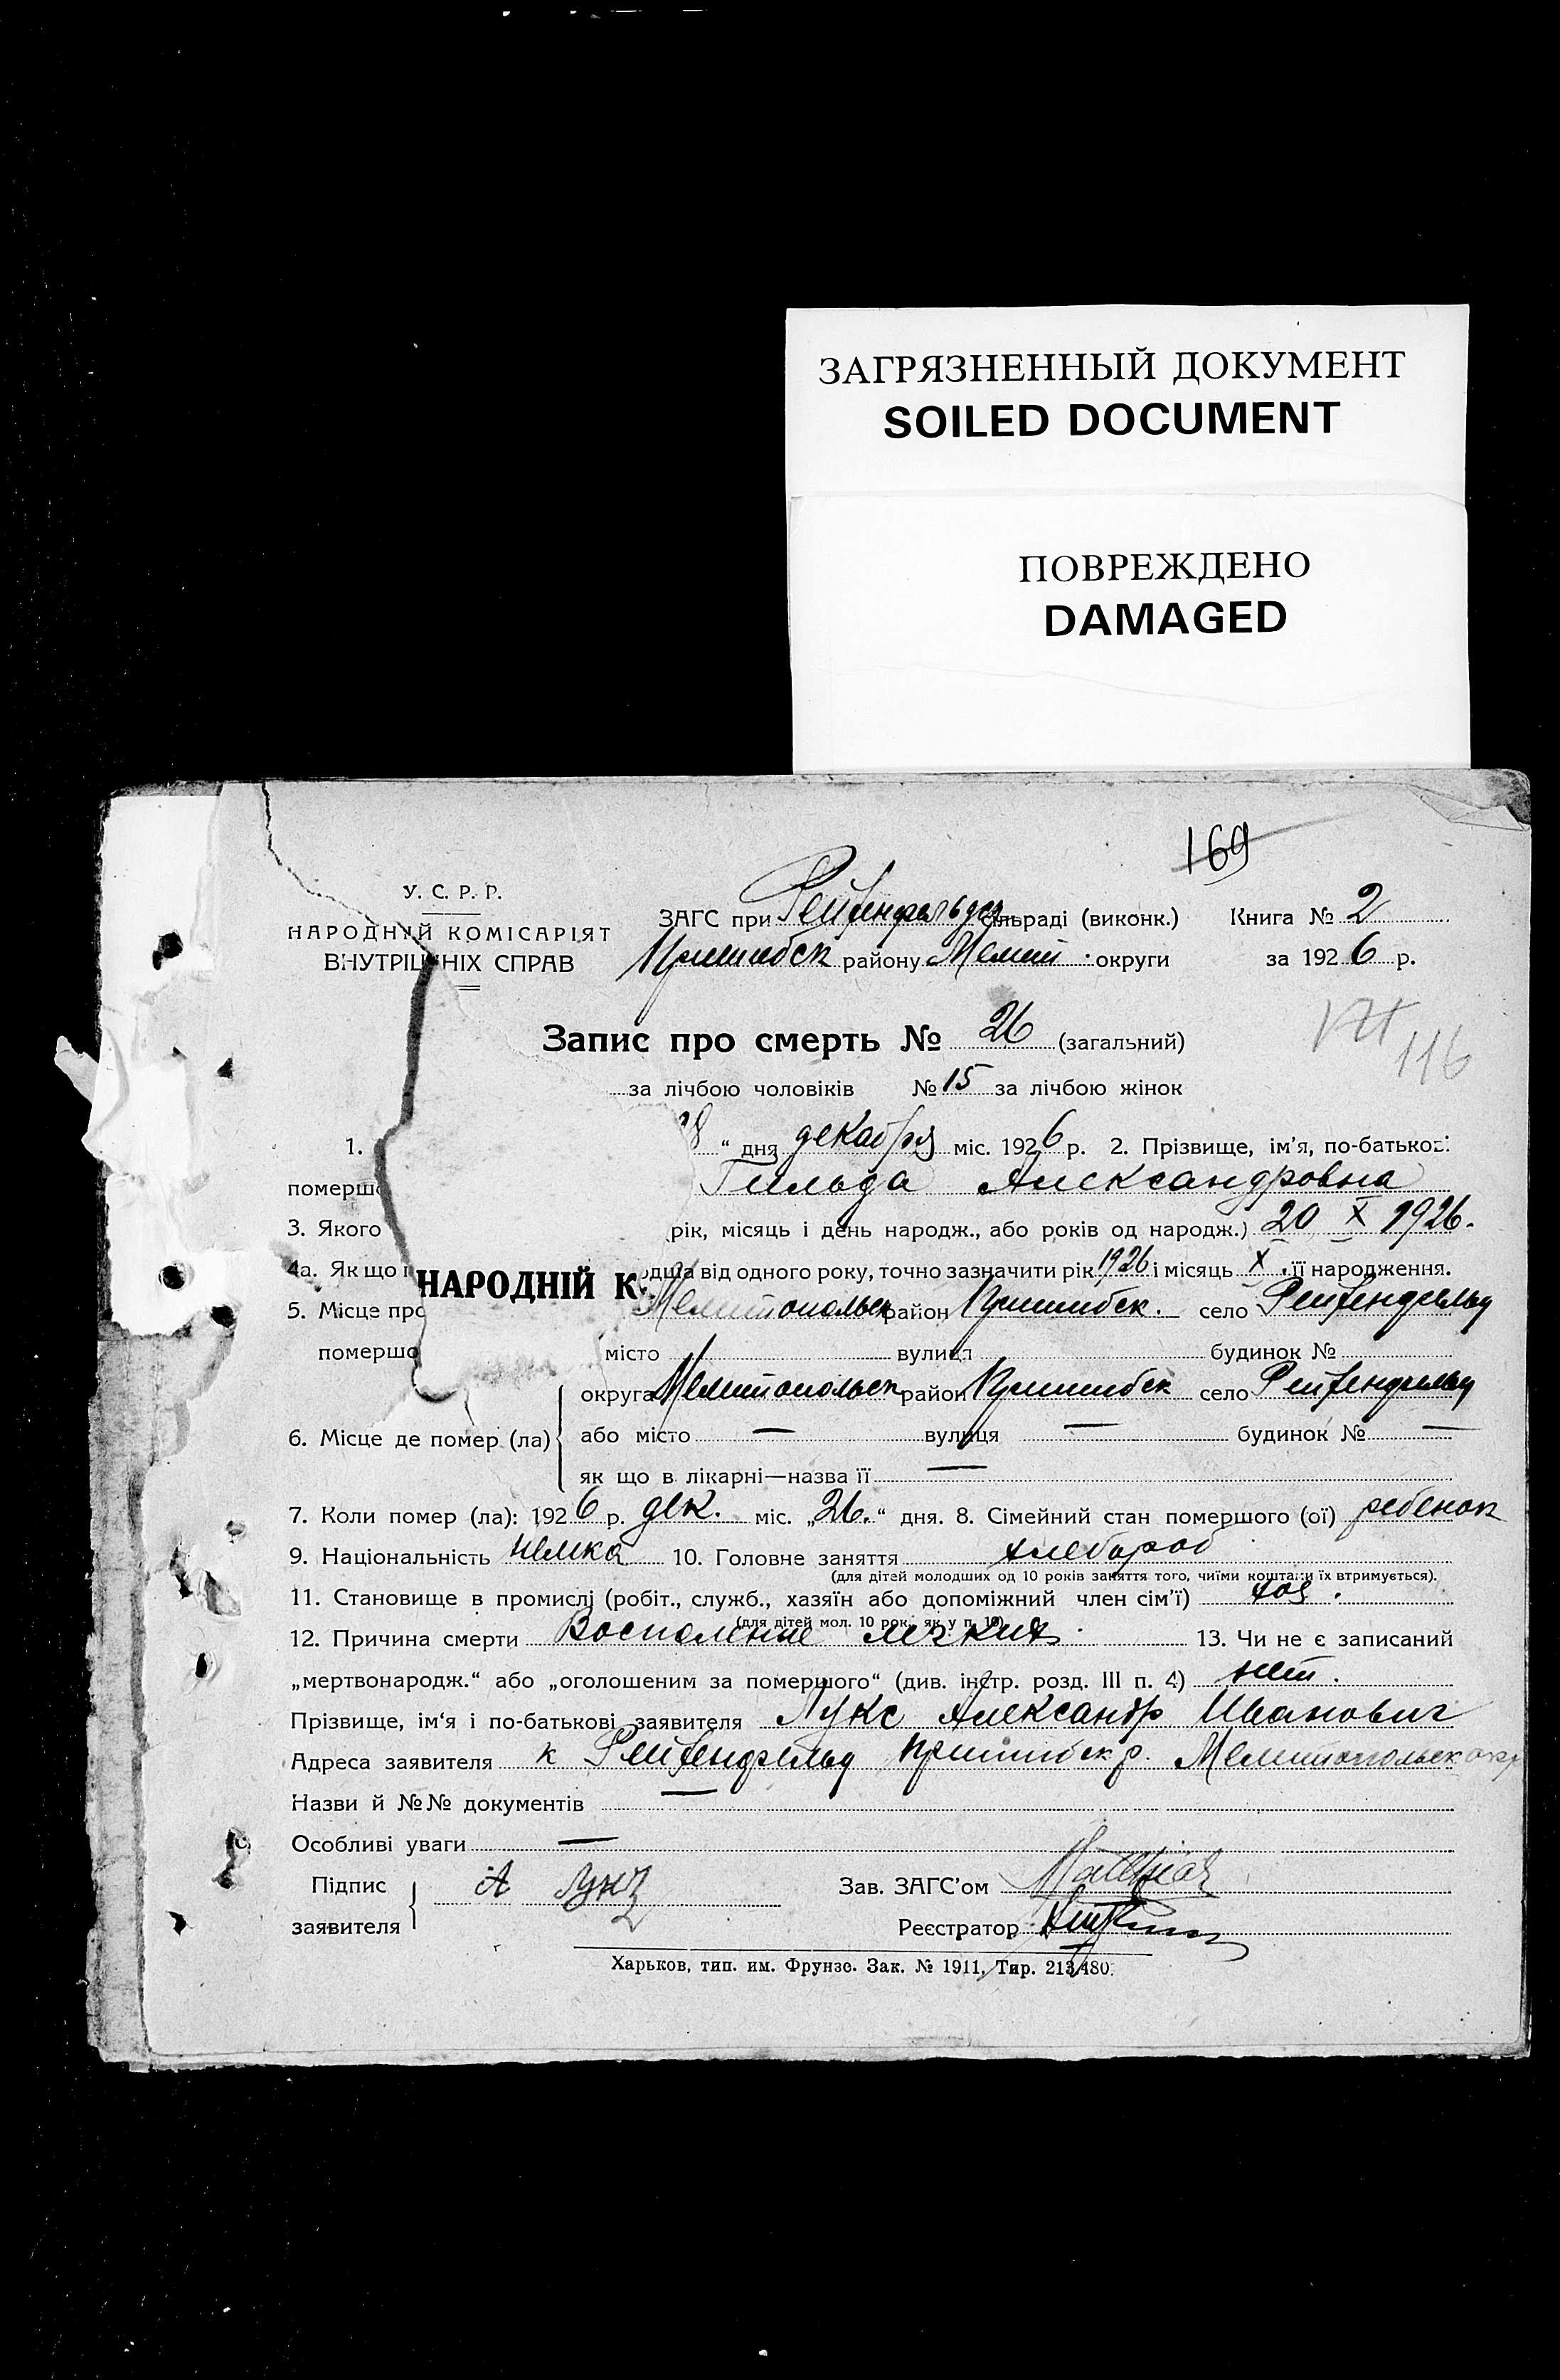 ЗАГРЯЗНЕННЫЙ ДОКУМЕНТ
SOILED DOCUMENT
ПОВРЕЖДЕНО
DAMAGED
169
У. С. Р. Р.
НАРОДНІЙ КОМІСАРІЯТ
ВНУТРІШНІХ СПРАВ
ЗАГС при Рейхенфельдск. сільраді (виконк.) Книга № 2
Пришибск району Мелит. округи за 1926 р.
Запис про смерть № 26 (загальний)
116
за лічбою чоловіків № 15 за лічбою жінок
1. 28 " дня декабря міс. 1926 р. 2. Прізвище, ім'я, по-батькові
Гильда Александровна
3. Якого рік, місяць і день народж., або років од народж.) 20 X 1926.
4а. Як що одша від одного року, точно зазначити рік 1926 і місяць X. її народження.
НАРОДНІЙ К
5. Місце Мелитопольск район Пришибск. село Рейхенфельд
місто вулиця будинок №
округа Мелитопольск район Пришибск село Рейхенфельд
6. Місце де помер (ла) або місто — вулиця — будинок № —
як що в лікарні—назва її —
7. Коли помер (ла): 1926 р. дек. міс. „26." дня. 8. Сімейний стан помершого (ої) ребенок
9. Національність немка 10. Головне заняття хлебороб
(для дітей молодших од 10 років заняття того, чиїми коштами їх втримується).
11. Становище в промислі (робіт., служб., хазяїн або допоміжний член сім'ї) хоз.
(для дітей мол. 10 рок. як у п. 10)
12. Причина смерти Воспаление легких. 13. Чи не є записаний
„мертвонародж." або „оголошеним за помершого" (див. інстр. розд. III п. 4) нет.
Прізвище, ім'я і по-батькові заявителя Лукс Александр Иванович
Адреса заявителя к Рейхенфельд Пришибск р. Мелитопольск окр
Назви й №№ документів —
Особливі уваги —
Підпис заявителя А Лукс Зав. ЗАГС'ом
Реєстратор
Харьков, тип. им. Фрунзе. Зак. № 1911, Тир. 213.480.